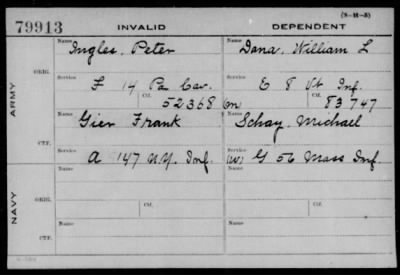 (3-H-3)
79913 INVALID DEPENDENT
Name Name
Ingles, Peter Dana, William L
ORIG. Service Service
F 14 Pa Cav. E 8 Vt Inf.
Ctf. 52368 (m) Ctf. 83747
ARMY
Name Name
Gier Frank Schay, Michael
CTF. Service Service
A 147 N.Y. Inf. (W) G 56 Mass Inf.
Name Name
ORIG. Service Ctf. Service Ctf.
NAVY
Name Name
CTF. Service Service